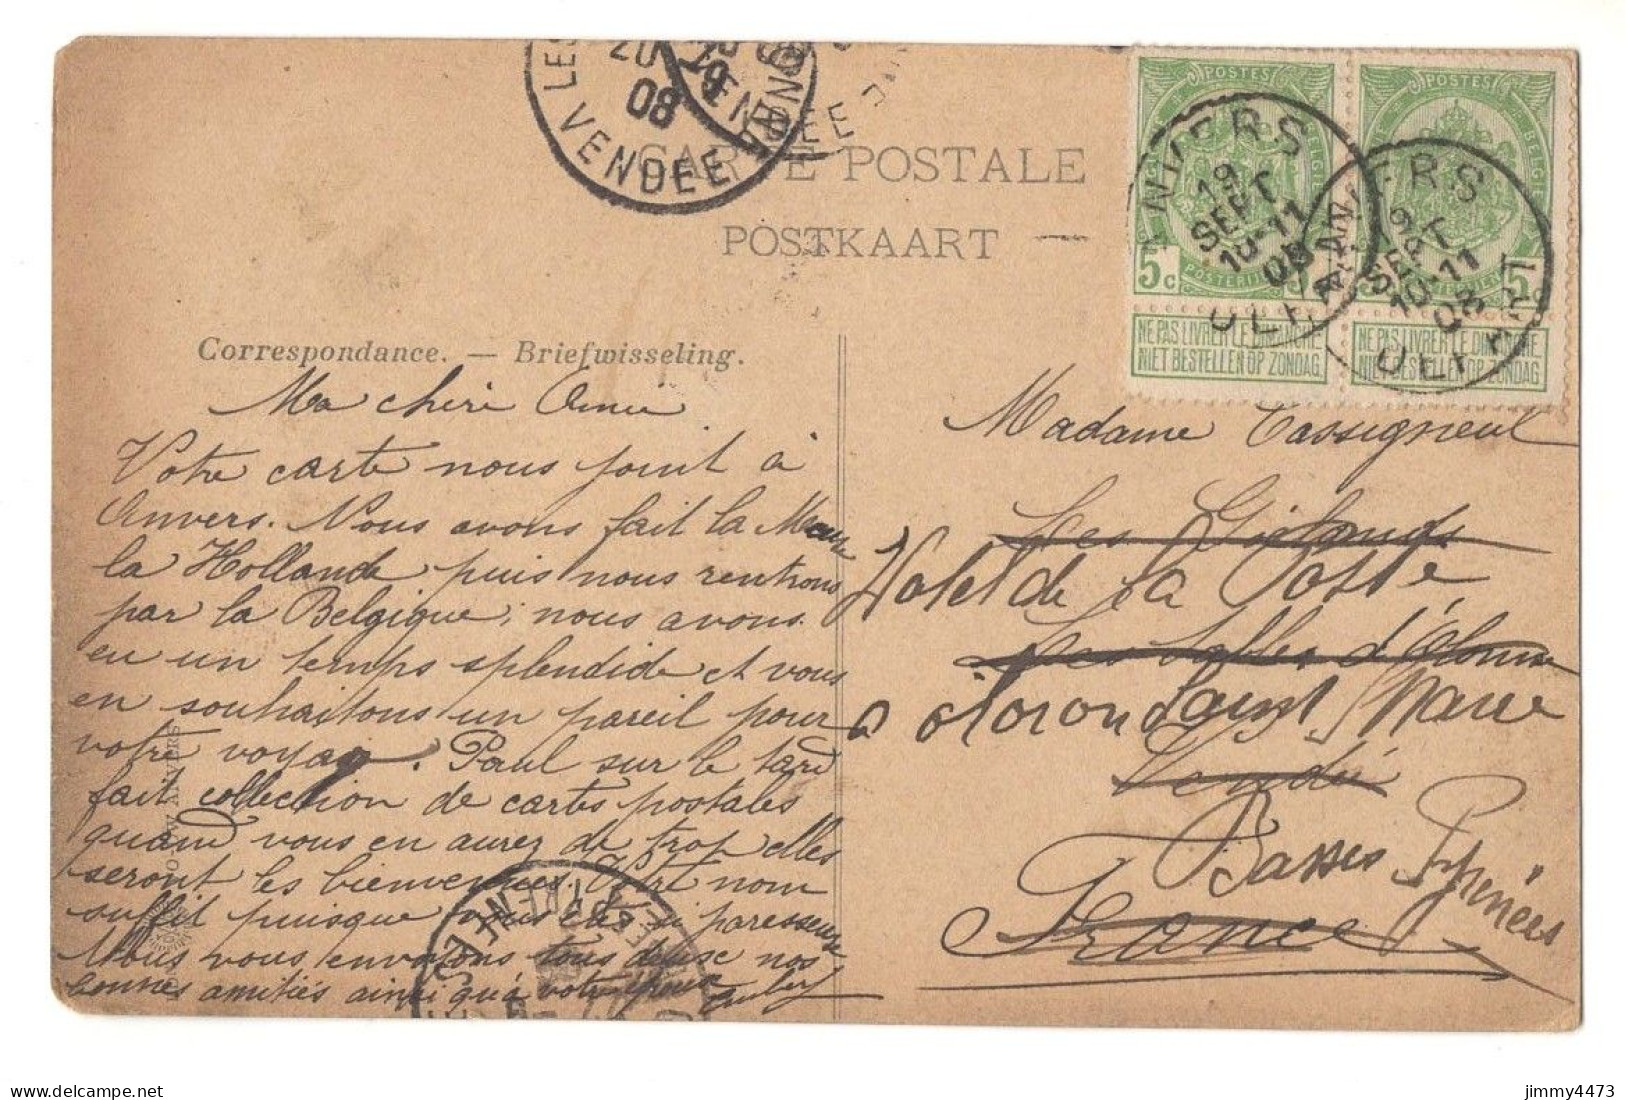 CARTE POSTALE
POSTKAART
Correspondance. — Briefwisseling.
LES
20
08
VENDEE
POSTES
BELGIE
5c
POSTERIJEN
NE PAS LIVRER LE DIMANCHE
NIET BESTELLEN OP ZONDAG
POSTES
BELGIE
5c
NE PAS LIVRER LE DIMANCHE
NIET BESTELLEN OP ZONDAG
19
SEPT
10-11
08
SEPT
10-11
08
Ma chère Aimée
Votre carte nous joint à
Anvers. Nous avons fait la Meuse
la Hollande puis nous rentrons
par la Belgique, nous avons
eu un temps splendide et vous
en souhaitons un pareil pour
votre voyage. Paul sur le tard
fait collection de cartes postales
quand vous en aurez de trop elles
seront les bienvenues. Votre nom
suffit puisque vous êtes si paresseuse
Nous vous envoyons tous deux nos
bonnes amitiés ainsi qu'à votre
Madame Tassigneul
Les
Hotel de la Poste
Les Sables d'Olonne
à oloron Saint Marie
Vendée
Basses Pyrénées
France
ANVERS
jimmy4473